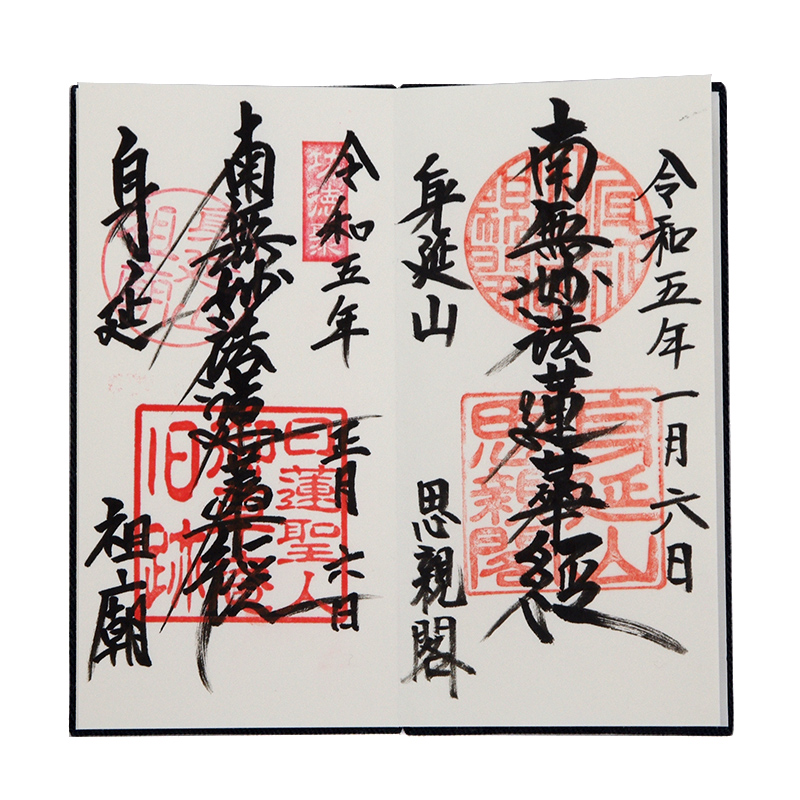 令和五年一月六日
南無妙法蓮華経
身延山
思親閣
身延山
思親閣
令和五年
正月六日
南無妙法蓮華経
日蓮聖人
旧跡
身延
祖廟